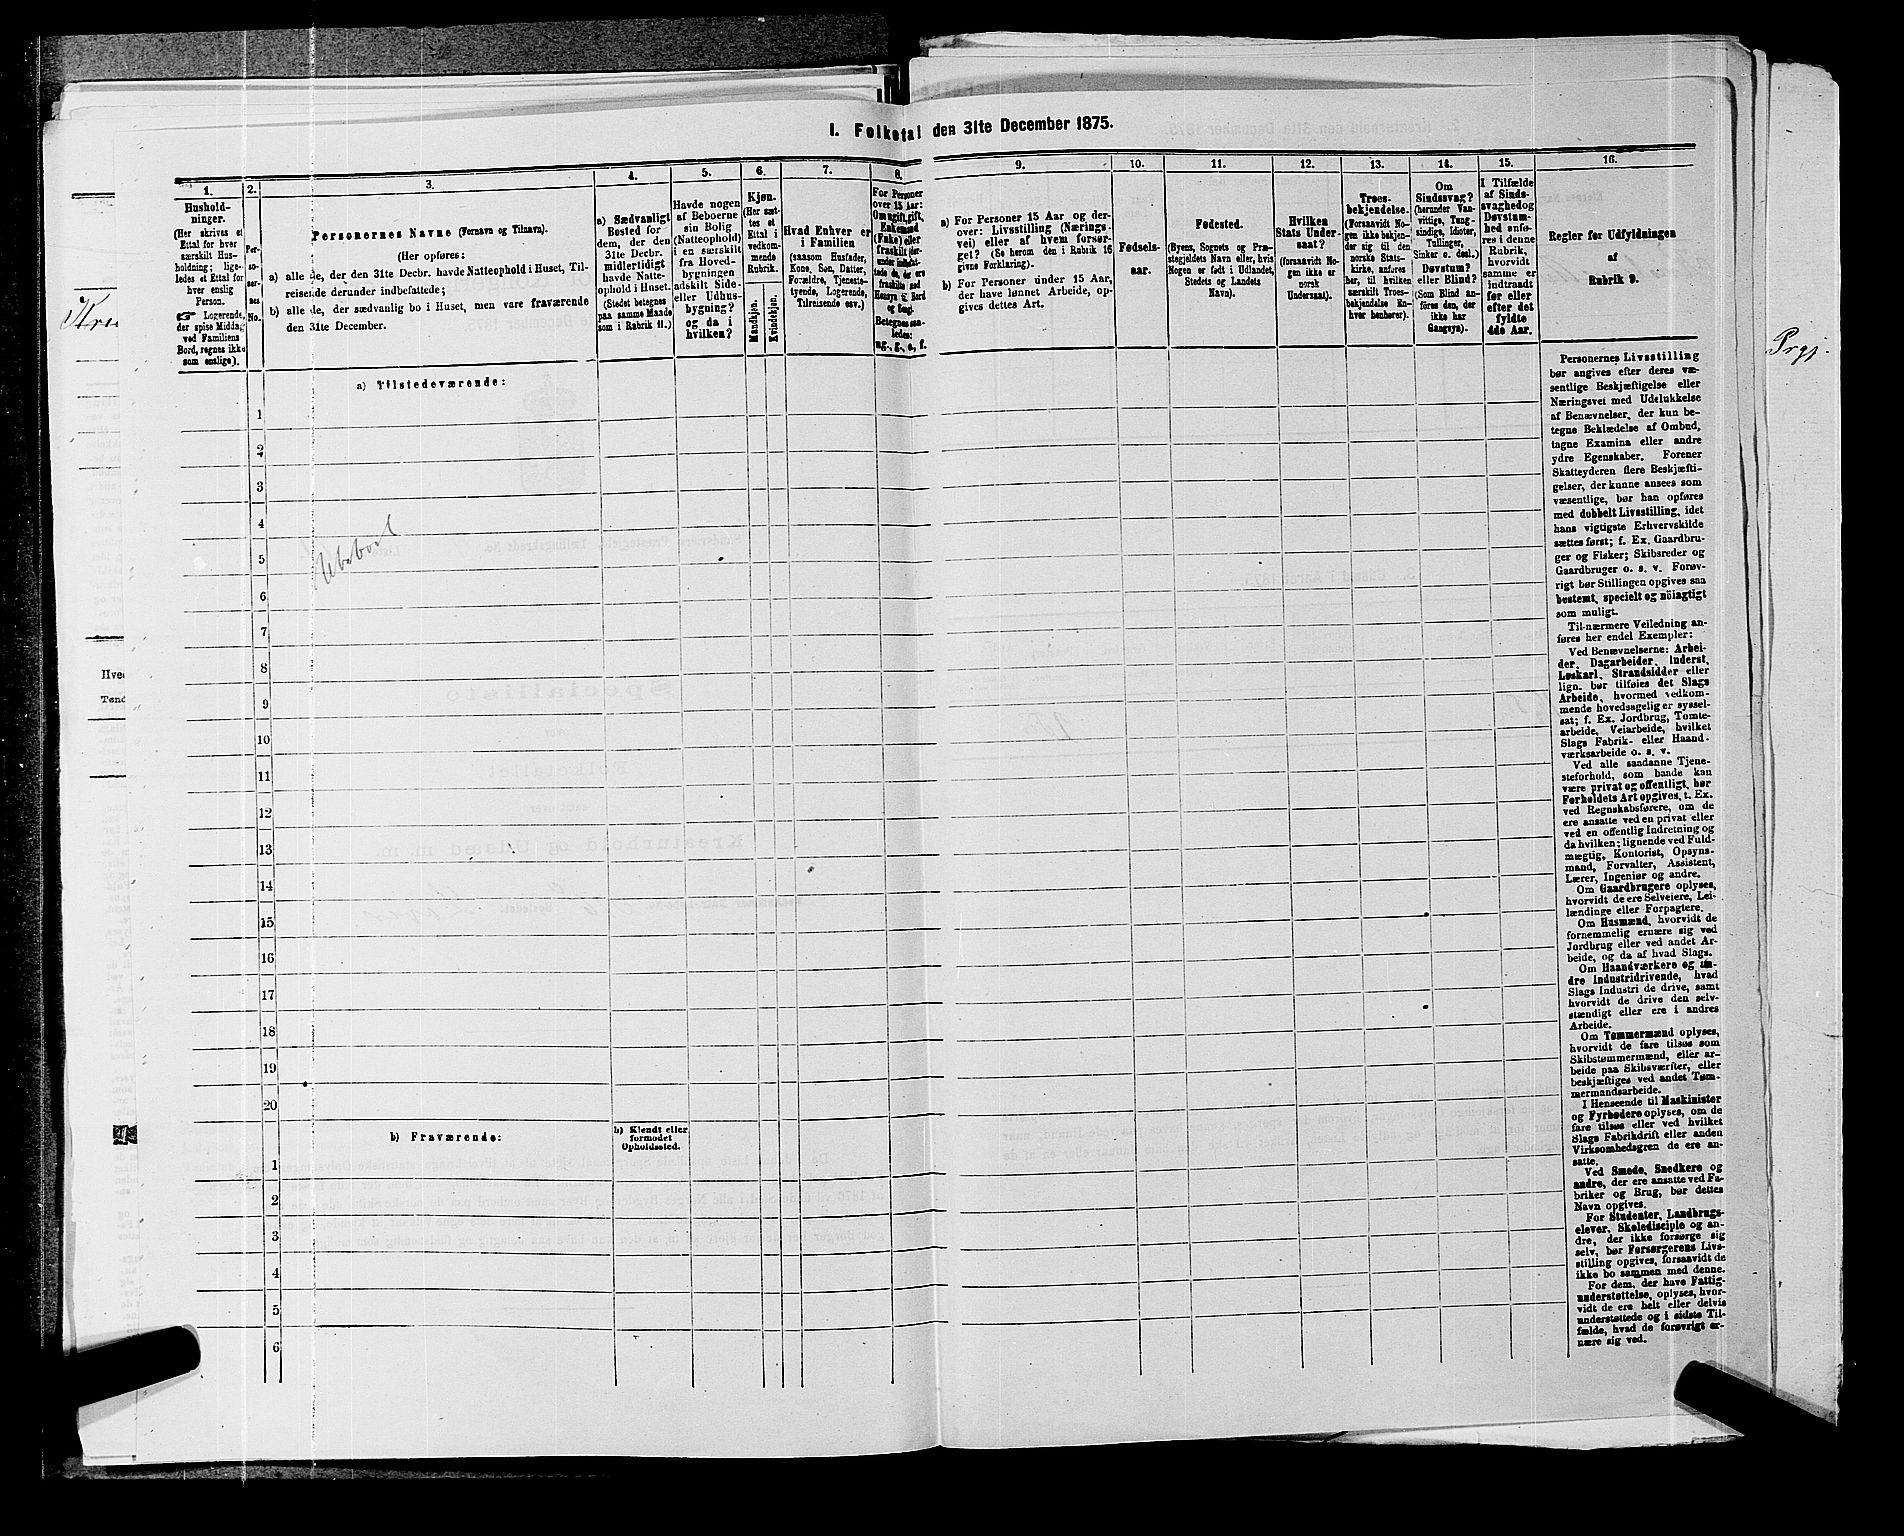 I. Folketal den 31te December 1875.
1.
Husholdninger.
(Her skrives et
Ettal for hver
særskilt Husholdning; ligeledes
et Ettal for
hver enslig
Person.
☞ Logerende,
der spise Middag
ved Familiens
Bord, regnes ikke
som enslige).
2.
Personernes
No.
3.
Personernes Navne (Fornavn og Tilnavn).
(Her opføres:
a) alle de, der den 31te Decbr. havde Natteophold i Huset, Tilreisende
derunder indbefattede;
b) alle de, der sædvanlig bo i Huset, men vare fraværende
den 31te December.
4.
a) Sædvanligt
Bosted for
dem, der den
31te Decbr.
midlertidigt
havde Natteophold
i Huset.
(Stedet betegnes
paa samme Maade
som i Rubrik 11.)
5.
Havde nogen
af Beboerne
sin Bolig
(Natteophold)
i en særskilt
fra Hovedbygningen
adskilt Side-
eller Udhusbygning?
og da i
hvilken?
6.
Kjøn.
(Her sættes
et
Ettal i
vedkommende
Rubrik.
Mandkjøn.
Kvindekjøn.
7.
Hvad Enhver er
i Familien
(saasom Husfader,
Kone, Søn, Datter,
Forældre, Tjenestetyende,
Logerende,
Tilreisende osv.)
8.
For Personer
over 15 Aar:
Om ugift, gift,
Enkemand
(Enke) eller
fraskilt
Betegnes saaledes:
ug., g., e., f.
9.
a) For Personer 15 Aar og derover:
Livsstilling (Næringsvei)
eller af hvem forsørget?
(Se herom den i Rubrik 16
givne Forklaring).
b) For Personer under 15 Aar,
der have lønnet Arbeide, opgives
dettes Art.
10.
Fødselsaar.
11.
Fødested.
(Byens, Sognets og Præstegjeldets
Navn eller, hvis
Nogen er født i Udlandet,
Stedets og Landets
Navn).
12.
Hvilken
Stats Undersaat?
(forsaavidt Nogen
ikke er
norsk
Undersaat).
13.
Troesbekjendelse.
(Forsaavidt Nogen
ikke bekjender
sig til den
norske Statskirke,
anføres
her, til hvilken
særskilt Troesbekjendelse
Enhver
henhører).
14.
Om
Sindssvag?
(herunder Vanvittige,
Tungsindige,
Idioter,
Tullinger,
Sinker o. desl.)
Døvstum?
eller Blind?
(Som Blind anføres
den, der
ikke har
Gangsyn).
15.
I Tilfælde
af Sindssvaghed
og
Døvstumhed
anføres
i denne
Rubrik,
hvorvidt
samme er
indtraadt
før eller
efter det
fyldte
4de Aar.
16.
Regler for Udfyldningen
af
Rubrik 9.
a) Tilstedeværende:
1
2
3
4
5
6
7
8
9
10
11
12
13
14
15
16
17
18
19
20
Ubeboet
b) Fraværende:
b) Kjendt eller
formodet
Opholdssted.
1
2
3
4
5
6
Personernes Livsstilling
bør angives efter deres væsentlige
Beskjæftigelse eller
Næringsvei med Udelukkelse
af Benævnelser, der kun betegne
Beklædelse af Ombud,
tagne Examina eller andre
ydre Egenskaber. Forener
Skatteyderen flere Beskjæftigelser,
der kunne ansees som
væsentlige, bør han opføres
med dobbelt Livsstilling, idet
hans vigtigste Erhvervskilde
sættes først; f. Ex. Gaardbruger
og Fisker; Skibsreder og
Gaardbruger o. s. v. Forøvrigt
bør Stillingen opgives saa
bestemt, specielt og nøiagtigt
som muligt.
Til nærmere Veiledning anføres
her endel Exempler:
Ved Benævnelserne: Arbeider,
Dagarbeider, Inderst,
Løskarl, Strandsidder eller
lign. bør tilføies det Slags
Arbeide, hvormed vedkommende
hovedsagelig er sysselsat;
f. Ex. Jordbrug, Tomtearbeide,
Veiarbeide, hvilket
Slags Fabrik- eller Haandværksarbeide
o. s. v.
Ved alle saadanne Tjenesteforhold,
som baade kan
være privat og offentligt, bør
Forholdets Art opgives, t. Ex.
ved Regnskabsførere, om de
ere ansatte ved en privat eller
ved en offentlig Indretning og
da hvilken; lignende ved Fuldmægtig,
Kontorist, Opsynsmand,
Forvalter, Assistent,
Lærer, Ingeniør og andre.
Om Gaardbrugere oplyses,
hvorvidt de ere Selveiere, Leilændinge
eller Forpagtere.
Om Husmænd, hvorvidt de
fornemmelig ernære sig ved
Jordbrug eller ved andet Arbeide,
og da af hvad Slags.
Om Haandværkere og andre
Industridrivende, hvad
Slags Industri de drive, samt
hvorvidt de drive den selvstændigt
eller ere i andres
Arbeide.
Om Tømmermænd oplyses,
hvorvidt de fare tilsøs som
Skibstømmermænd, eller arbeide
paa Skibsværfter, eller
beskjæftiges ved andet Tømmermandsarbeide.
I Henseende til Maskinister
og Fyrbødere oplyses, om de
fare tilsøs eller ved hvilket
Slags Fabrikdrift eller anden
Virksomhedsgren de ere ansatte.
Ved Smede, Snedkere og
andre, der ere ansatte ved Fabriker
og Brug, bør dettes
Navn opgives.
For Studenter, Landbrugselever,
Skoledisciple og andre,
der ikke forsørge sig
selv, bør Forsørgerens Livsstilling
opgives, forsaavidt de
ikke bo sammen med denne.
For dem, der have Fattigunderstøttelse,
oplyses, hvorvidt
de ere helt eller delvis
understøttede og i sidste Tilfælde,
hvad de forøvrigt ernære
sig ved.